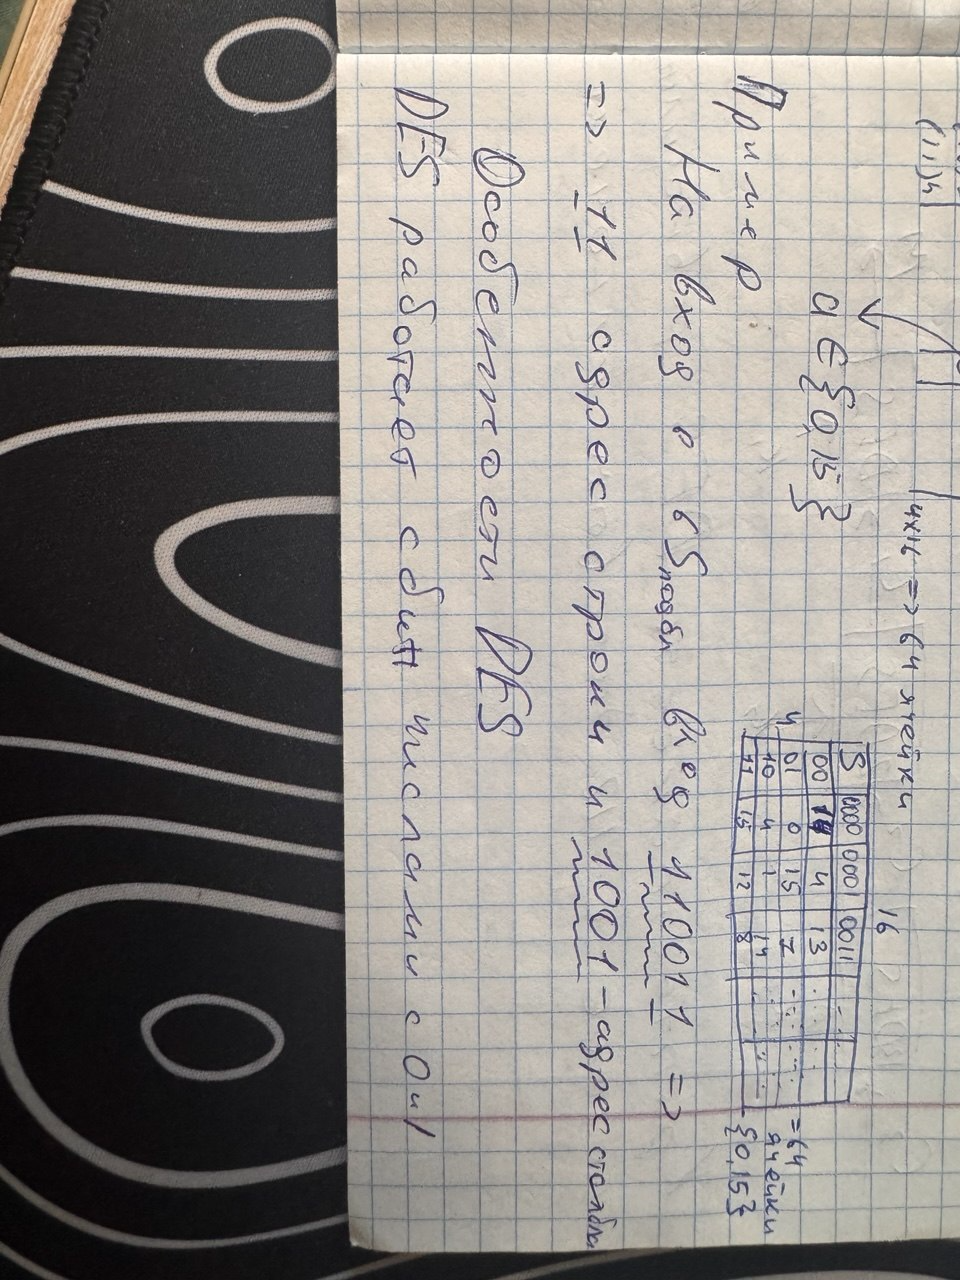 4x16 => 64 ячейки
16
a ∈ {0,15}
S 0000 0001 0011 ...
00 14 4 13 ...
4 01 0 15 7 ...
10 4 1 14 ...
11 15 12 8 ...
=64
ячейки
{0,15}
Пример
На вход в S подбл вход 110011 =>
=> 11 адрес строки и 1001 - адрес столбца
Особенности DES
DES работает с бит числами с 0 и 1